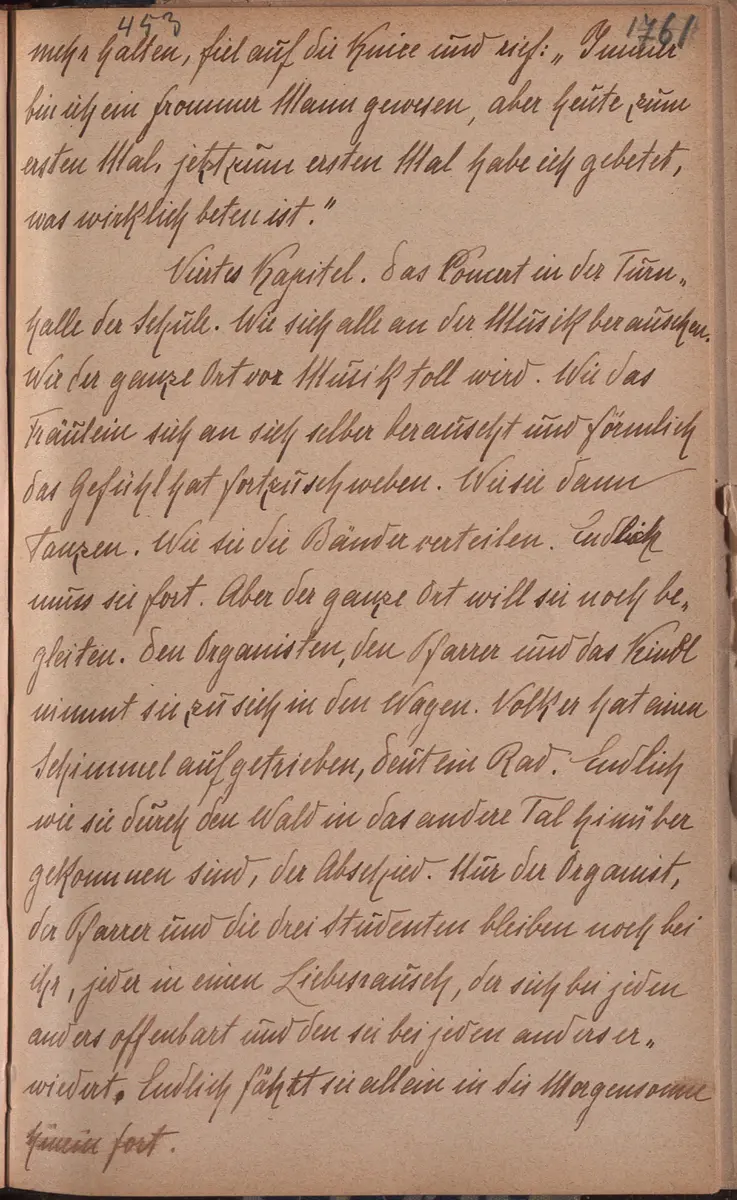 453
1761
mehr halten, fiel auf die Kniee und rief: „Immer
bin ich ein frommer Mann gewesen, aber heute zum
ersten Mal, jetzt zum ersten Mal habe ich gebetet,
was wirklich beten ist."
Viertes Kapitel. Das Concert in der Turn„
halle der Schule. Wie sich alle an der Musik berauschen.
Wie der ganze Ort vor Musik toll wird. Wie das
Fräulein sich an sich selber berauscht und förmlich
das Gefühl hat fortzuschweben. Wie sie dann
tanzen. Wie sie die Bänder verteilen. Endlich
muss sie fort. Aber der ganze Ort will sie noch be„
gleiten. Den Organisten, den Pfarrer und das Kindl
nimmt sie zu sich in den Wagen. Volker hat einen
Schimmel aufgetrieben, Deut ein Rad. Endlich
wie sie durch den Wald in das andere Tal hinüber
gekommen sind, der Abschied. Nur der Organist,
der Pfarrer und die drei Studenten bleiben noch bei
ihr, jeder in einen Liebesrausch, der sich bei jeden
anders offenbart und den sie bei jeden anders er„
wiedert. Endlich fährt sie allein in die Morgensonne
hinein fort.